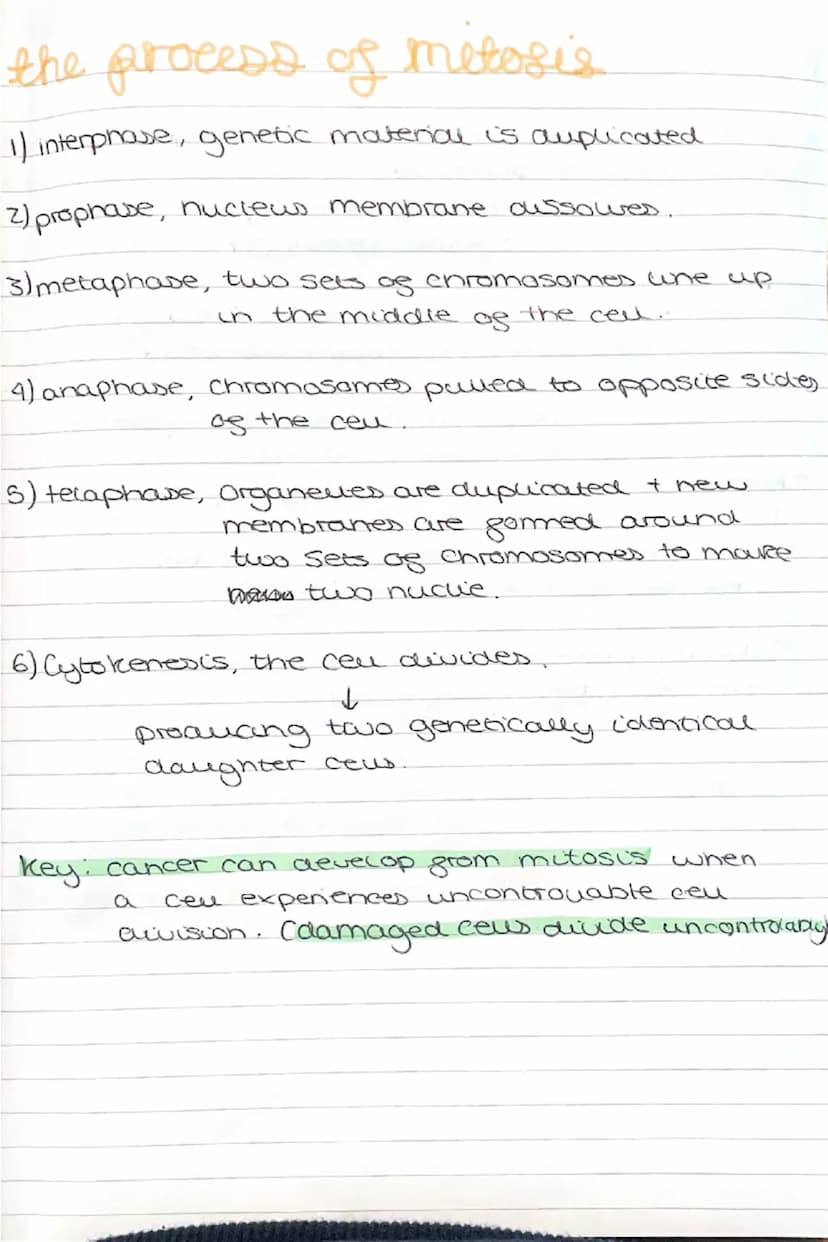 the process of mitosis
1) interphase, genetic material is duplicated
2) prophase, nucleus membrane dissolves.
3) metaphase, two sets of chromosomes line up
in the middle of the cell.
4) anaphase, chromosomes pulled to opposite sides
of the cell.
5) telaphase, organelles are duplicated + new
membranes are formed around
two sets of chromosomes to make
two nuclie.
6) Cytokenesis, the cell divides.
↓
producing two genetically identical
daughter cells.
Key: cancer can develop from mitosis when
a cell experiences uncontrollable cell
division. (damaged cells divide uncontrolably